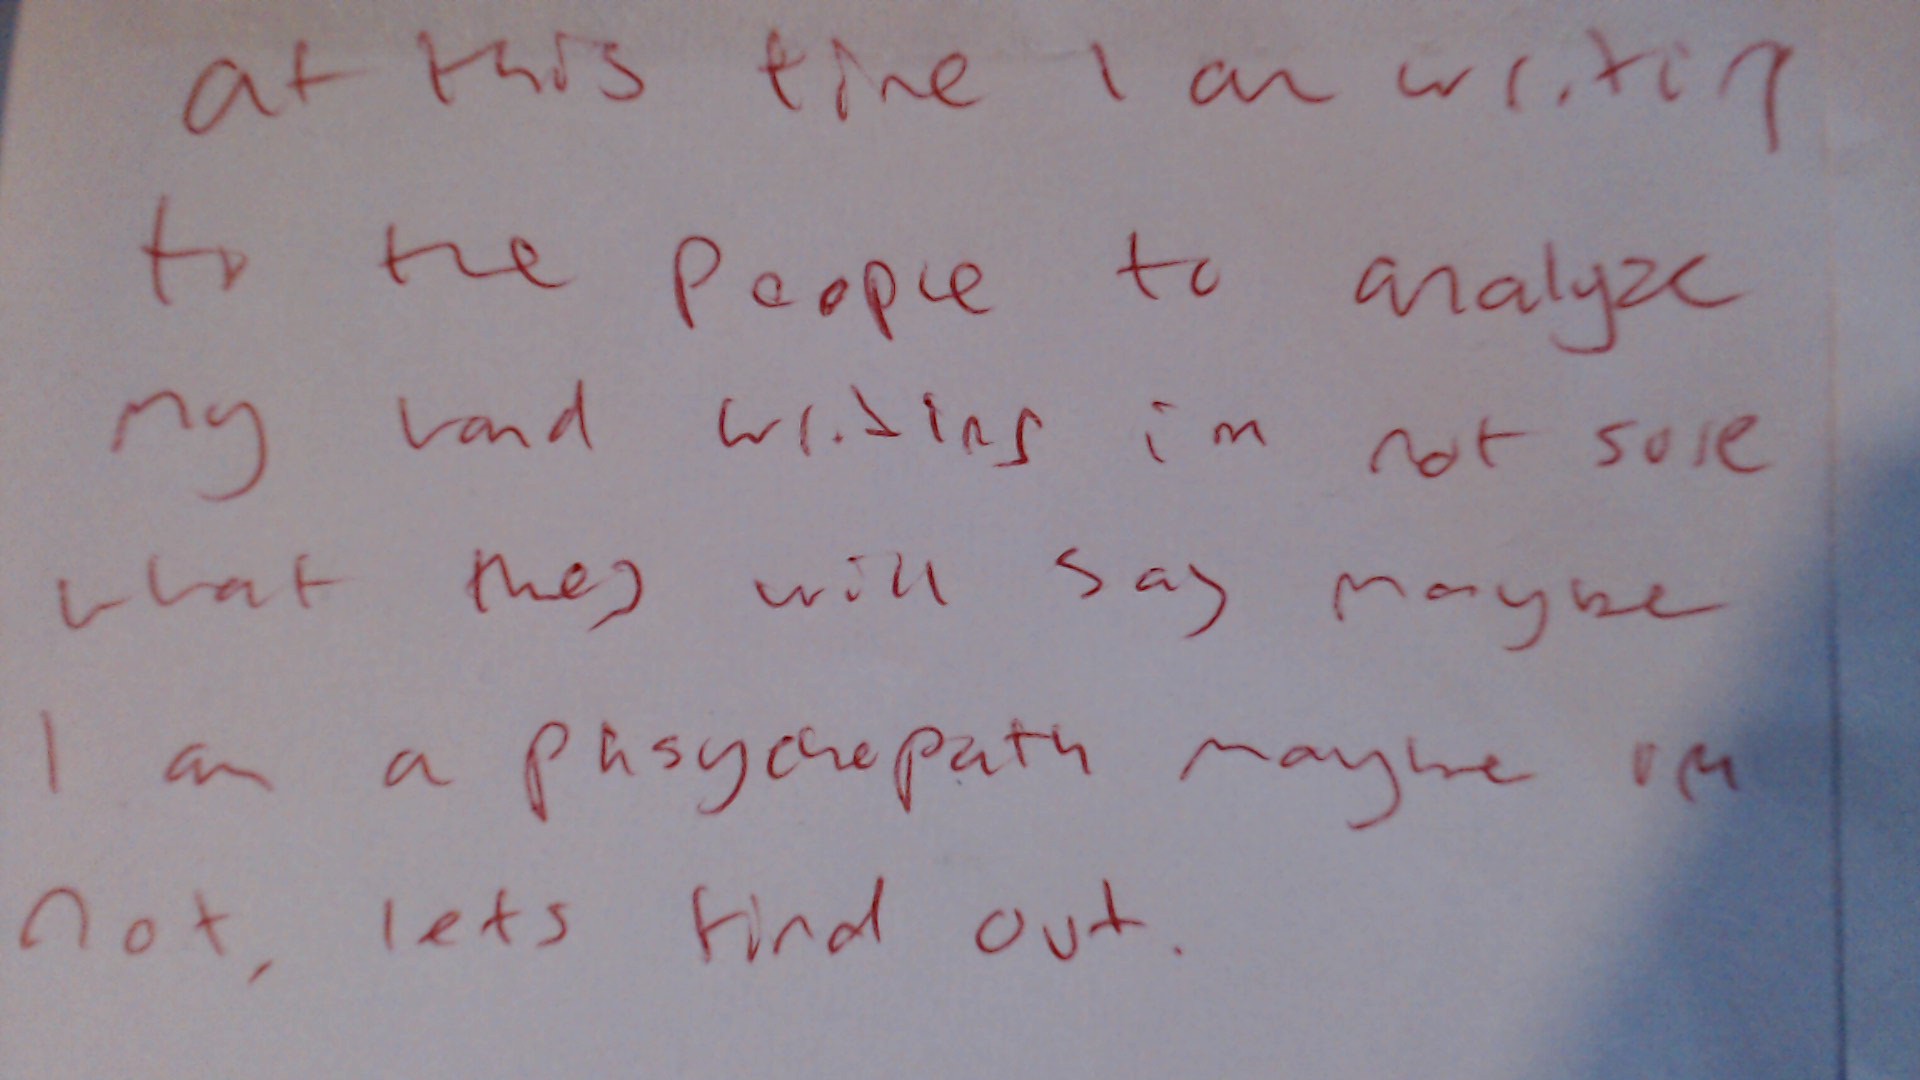 at this time I am writing
to the people to analyze
my hand writing im not sure
what they will say maybe
I am a phsychopath maybe im
not, lets find out.